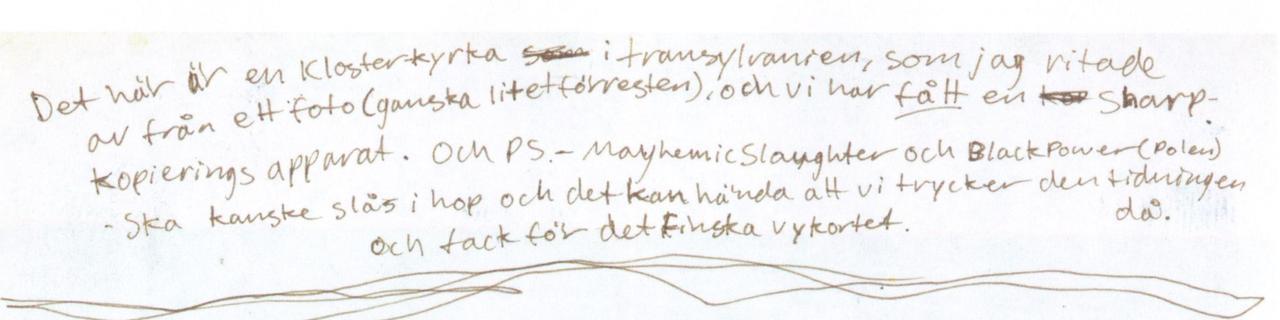 Det här är en Klosterkyrka i transylvanien, som jag ritade
av från ett foto (ganska litet förresten), och vi har fått en Sharp-
kopierings apparat. Och PS. - Mayhemic Slaughter och Black Power (Polen)
- Ska kanske slås i hop och det kan hända att vi trycker den tidningen
då.
och tack för det Finska vykortet.